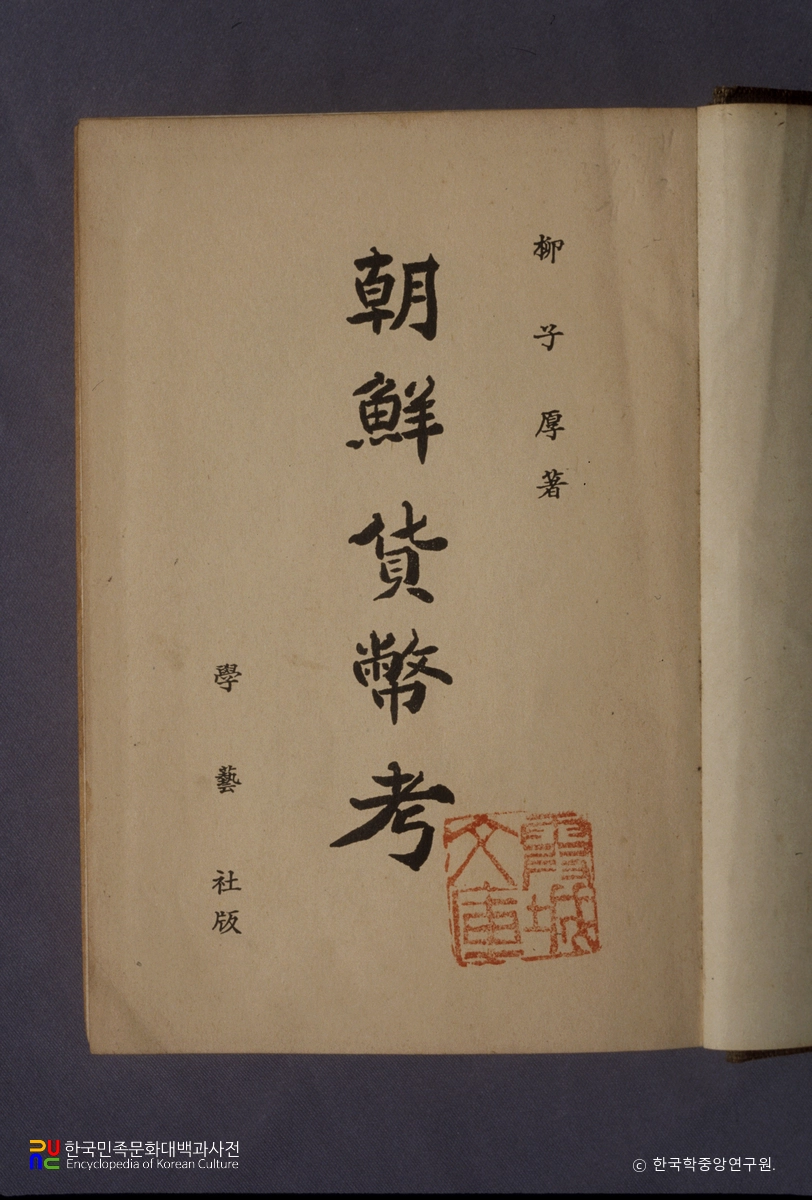 柳子厚著
朝鮮貨幣考
學藝社版
文庫
한국민족문화대백과사전
Encyclopedia of Korean Culture
© 한국학중앙연구원.